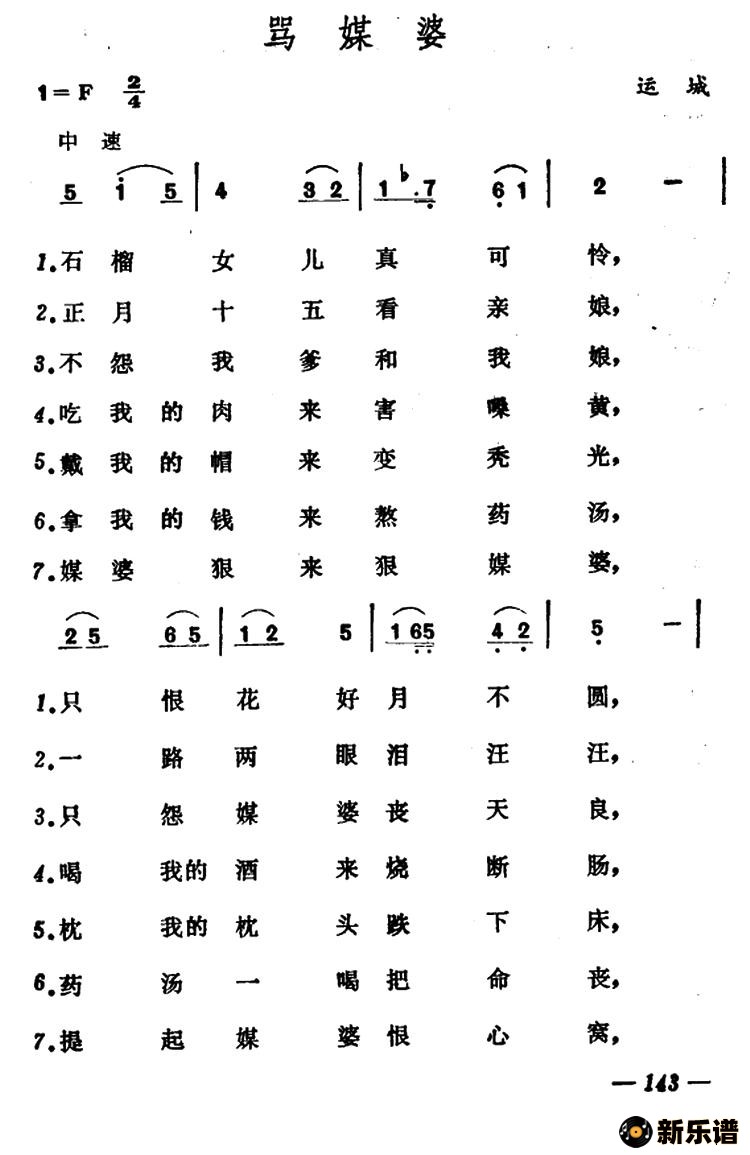 骂媒婆
1=F 2/4 运城
中速
5 i 5 | 4 3 2 | 1 ♭7 6 1 | 2 — |
1.石榴女儿真可怜，
2.正月十五看亲娘，
3.不怨我爹和我娘，
4.吃我的肉来害嗓黄，
5.戴我的帽来变秃光，
6.拿我的钱来熬药汤，
7.媒婆狠来狠媒婆，
2 5 6 5 | 1 2 5 | 1 6 5 4 2 | 5 — |
1.只恨花好月不圆，
2.一路两眼泪汪汪，
3.只怨媒婆丧天良，
4.喝我的酒来烧断肠，
5.枕我的枕头跌下床，
6.药汤一喝把命丧，
7.提起媒婆恨心窝，
— 143 —
新乐谱